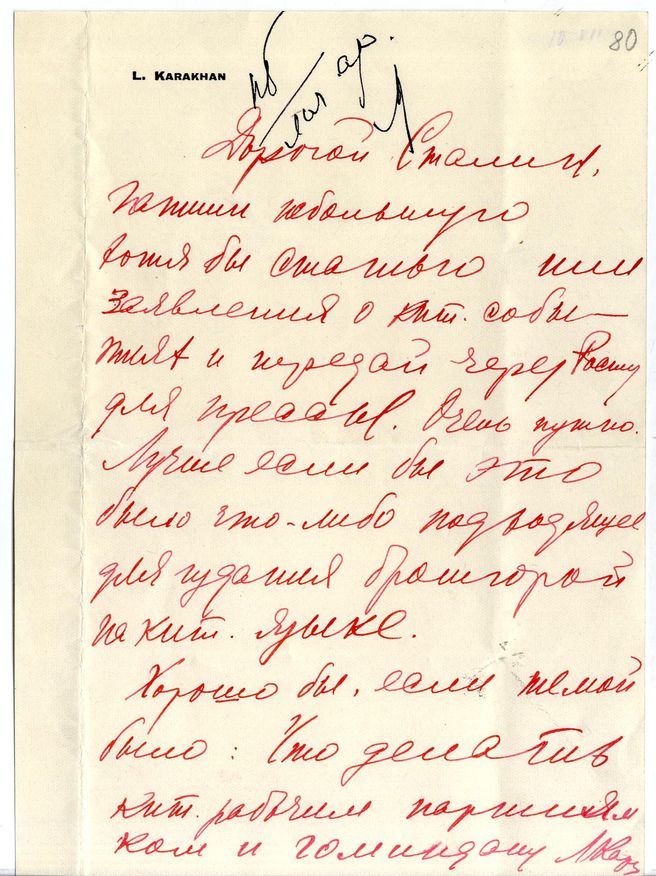 80
L. KARAKHAN
Дорогой Сталин,
напиши небольшую
хотя бы статью или
заявления о кит. собы-
тиях и передай через Росту
для прессы. Очень нужно.
Лучше если бы это
было что-либо подводящее
для издания брошюрой
на кит. языке.
Хорошо бы, если темой
было: Что делать
кит. рабочим
ком и гоминдану ЛКар